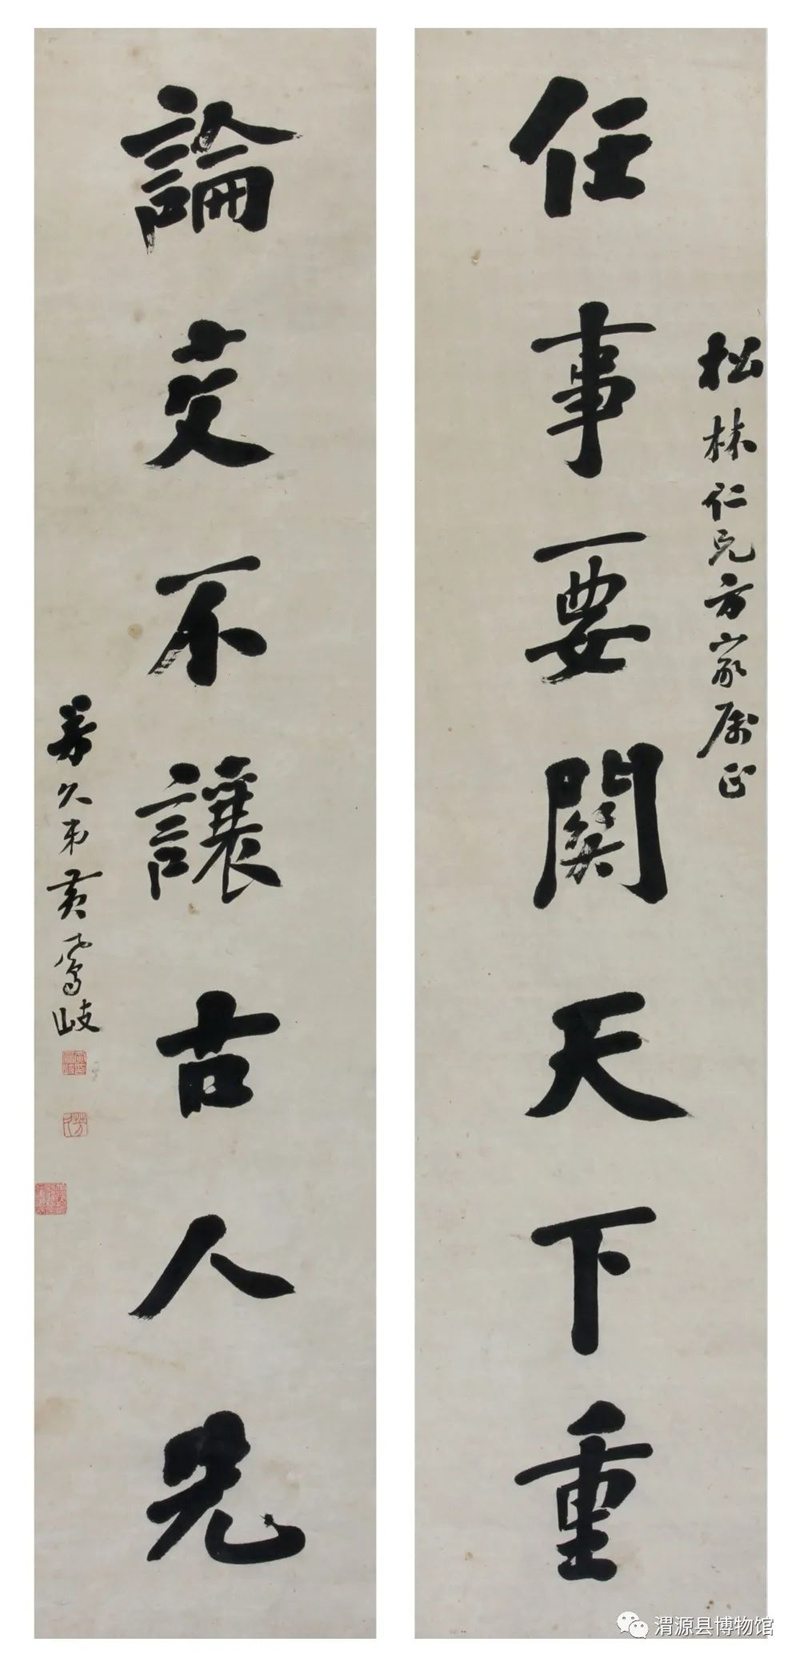 任事要關天下重
松林仁兄方家属正
論交不讓古人先
芳久弟黄鳳岐
渭源县博物馆